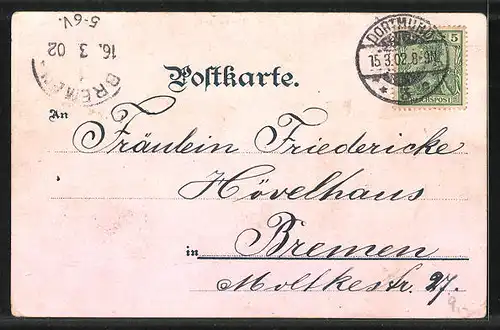 5-6V.
16. 3 02
BREMEN
DORTMUND
15.3.02.8-9N.
* 5 c
5
REICHSPOST
Postkarte.
An
Fräulein Friedericke
Hövelhaus
in Bremen
Moltkestr. 27.
9,-